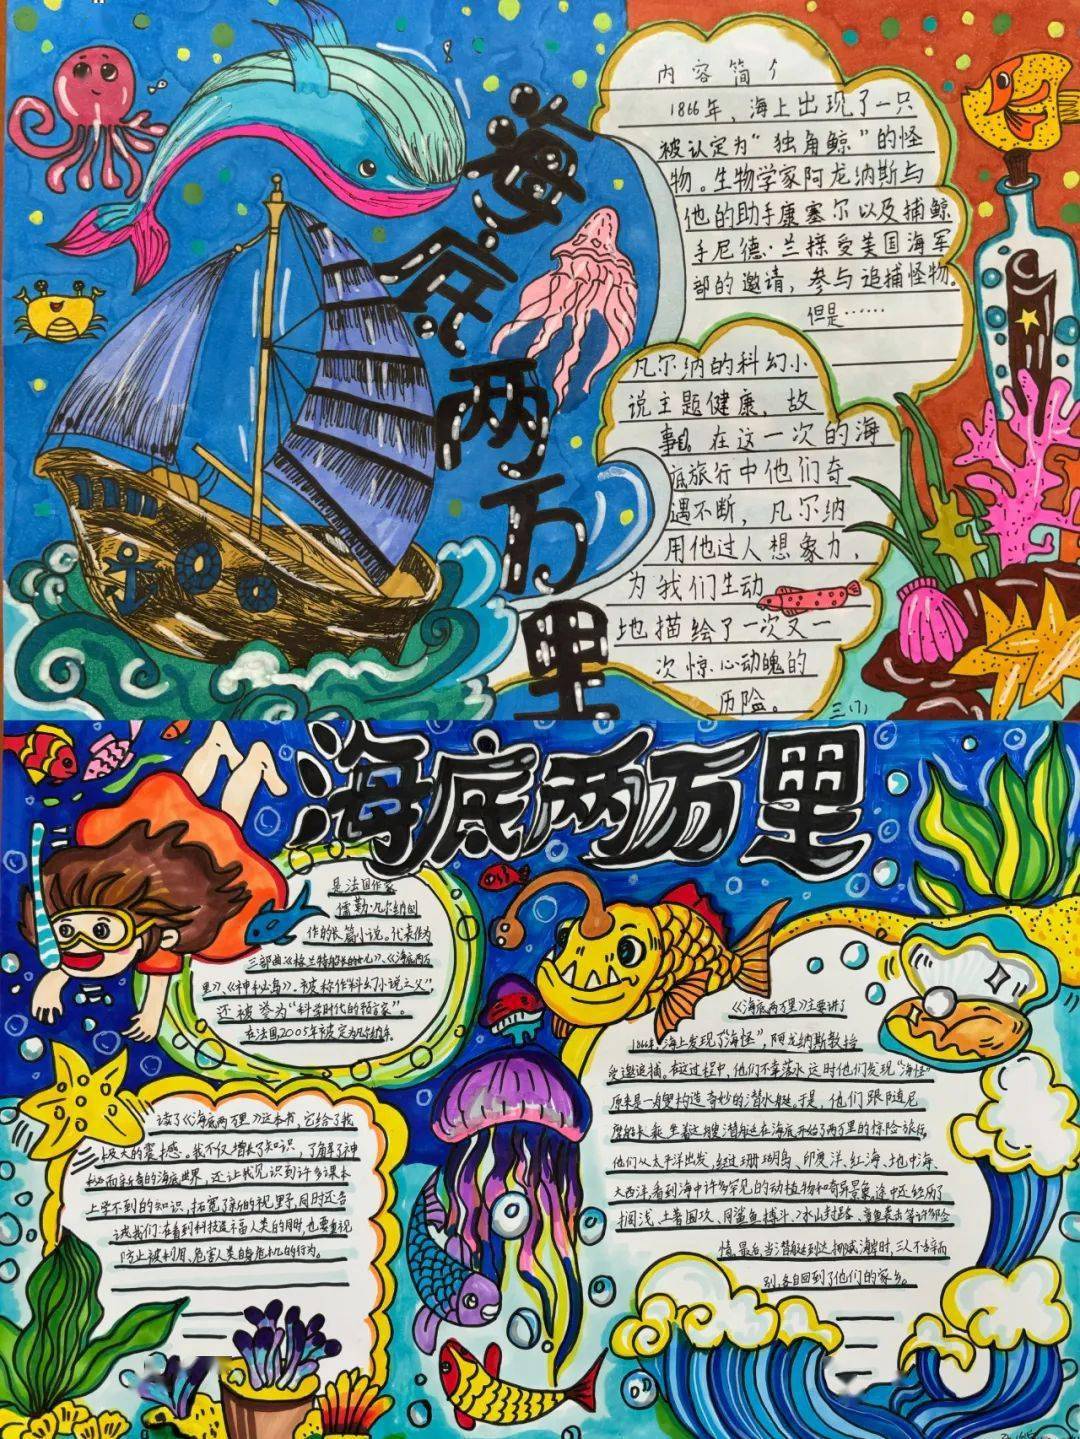 海底两万里
内容简介
1866年，海上出现了一只
被认定为“独角鲸”的怪
物。生物学家阿龙纳斯与
他的助手康塞尔以及捕鲸
手尼德·兰接受美国海军
部的邀请，参与追捕怪物。
但是……
凡尔纳的科幻小
说主题健康，故
事。在这一次的海
底旅行中他们奇
遇不断，凡尔纳
用他过人想象力，
为我们生动
地描绘了一次又一
次惊心动魄的
历险。
海底两万里
是法国作家
儒勒·凡尔纳创
作的长篇小说。代表作为
三部曲《格兰特船长的儿女》、《海底两万
里》、《神秘岛》，被称作“科幻小说之父”，
还被誉为“科学时代的预言家”。
在法国2005年被定为凡尔纳年。
读了《海底两万里》这本书，它给了我
极大的震撼。我不仅增长了知识，了解了神
秘而新奇的海底世界，还让我见识到许多课本
上学不到的知识，拓宽了我的视野，同时还告
诫我们：在看到科技造福人类的同时，也要重视
防止被利用、危害人类自身危机的行为。
《海底两万里》主要讲了
1866年，海上发现了“海怪”，阿龙纳斯教授
受邀追捕。在这过程中，他们不幸落水，这时他们发现“海怪”
原来是一艘构造奇妙的潜水艇。于是，他们跟随尼
摩船长乘坐着这艘潜艇在海底开始了两万里的惊险旅行。
他们从太平洋出发，经过珊瑚岛、印度洋、红海、地中海、
大西洋，看到海中许多罕见的动植物和奇异景象，途中还经历了
搁浅、土著围攻、同鲨鱼搏斗、冰山封路、章鱼袭击等许多险
情。最后，当潜艇到达挪威海岸时，三人不辞而
别，各自回到了他们的家乡。